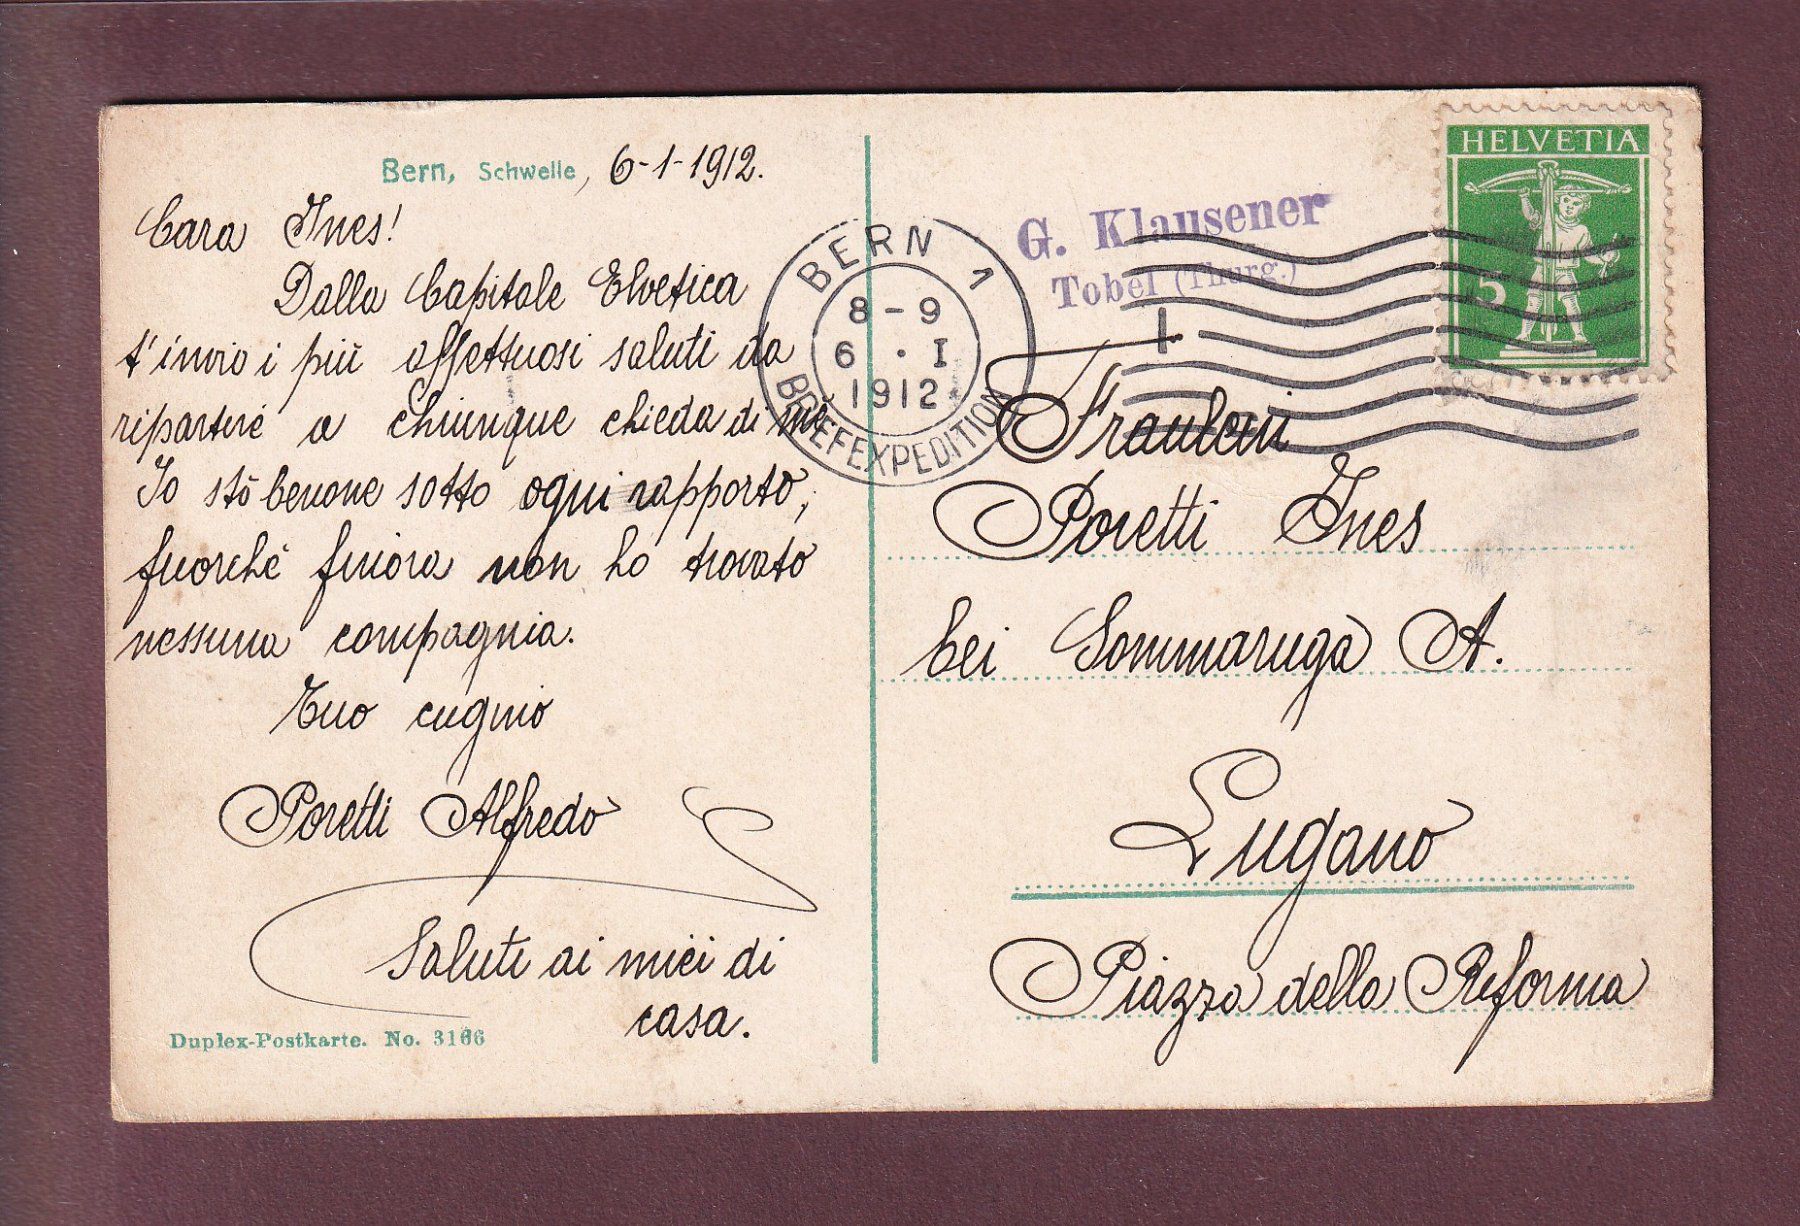 Bern, Schwelle, 6-1-1912.
Cara Ines!
Dalla Capitale Elvetica
t'invio i più affettuosi saluti da
ripartire a chiunque chieda di me
Io stò benone sotto ogni rapporto,
fuorchè finora non ho trovato
nessuna compagnia.
Tuo cugino
Poretti Alfredo
Saluti ai miei di
casa.
Duplex-Postkarte. No. 3166
BERN 1
8-9
6 . I
1912
BRIEFEXPEDITION
G. Klausener
Tobel (Thurg.)
HELVETIA
5
Fraulein
Poretti Ines
bei Sommaruga A.
Lugano
Piazza della Reforma